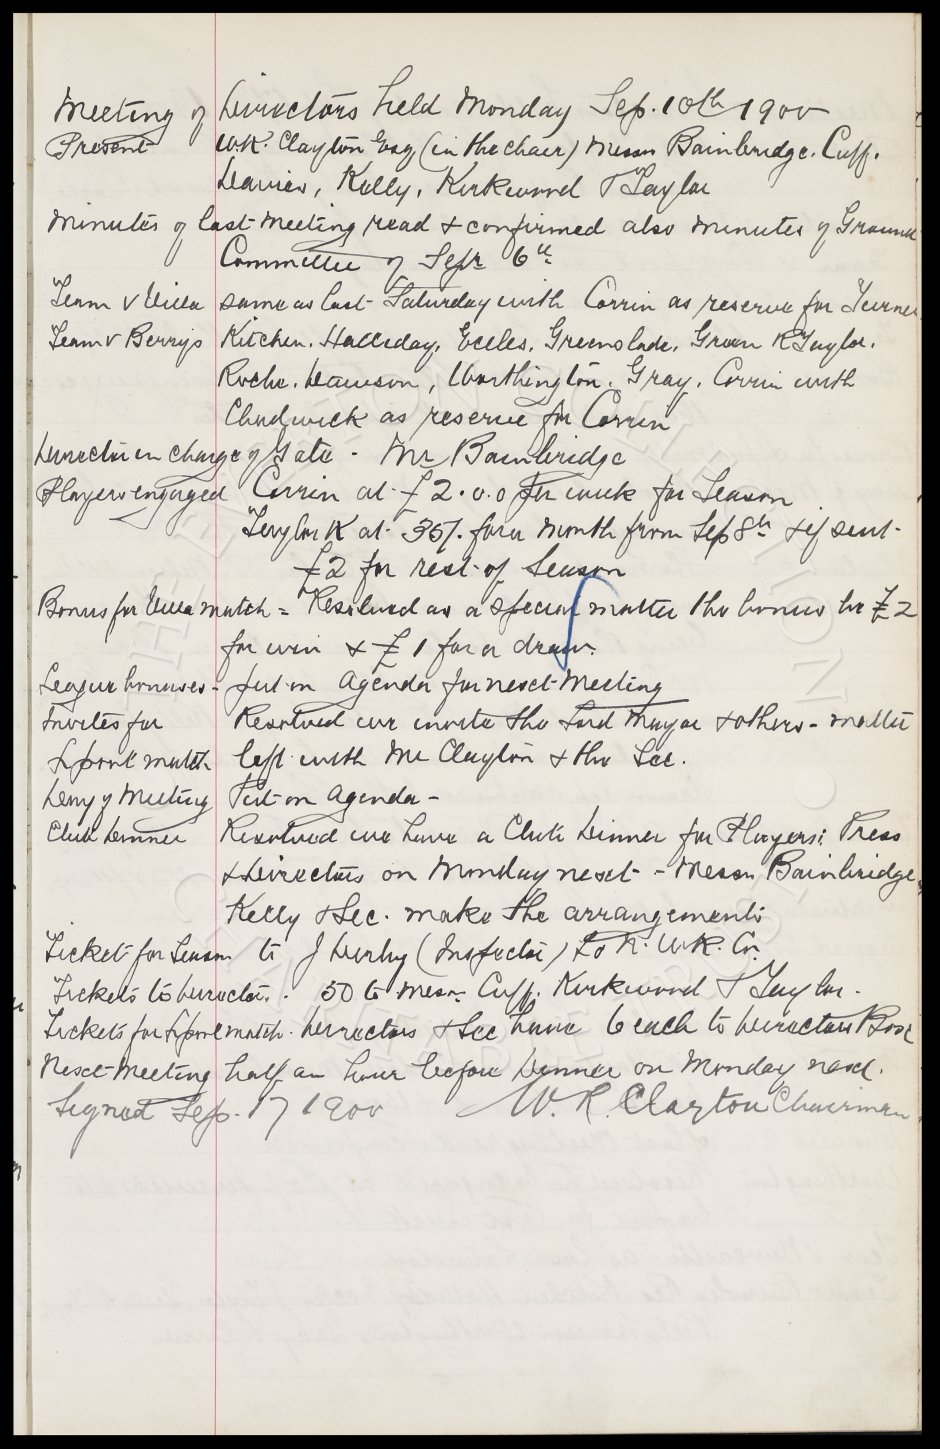 Meeting of Directors held Monday Sep. 10th 1900
Present W.R. Clayton Esq (in the chair) Messrs Bainbridge. Cuff.
Davies, Kelly, Kirkwood & Taylor
Minutes of last meeting read & confirmed also minutes of Ground
Committee of Sepr 6th
Team v Villa same as last Saturday with Corrin as reserve for Turner
Team v Berrys Kitchen. Halliday, Eccles, Greenslade, Green R Taylor.
Roche. Dawson, Worthington. Gray. Corrin with
Chadwick as reserve for Corrin
Director in charge of Gate - Mr Bainbridge
Players engaged Corrin at £2.0.0 per week for Season
Taylor R at 35/- for a month from Sep 8th & if sent
£2 for rest of Season
Bonus for Villa match = Resolved as a special matter the bonus be £2
for win & £1 for a draw.
League bonuses - put on Agenda for next Meeting
Invites for Resolved we invite the Lord Mayor & others - matter
Lpool match left with Mr Clayton & the Sec.
Day of Meeting Put on Agenda -
Club Dinner Resolved we have a Club Dinner for Players: Press
& Directors on Monday next - Messrs Bainbridge
Kelly & Sec. make the arrangements
Ticket for Season to J Derby (Inspector)
Tickets to Directors. 50 to Messrs. Cuff. Kirkwood & Taylor.
Tickets for Lpool match. Directors & Sec have 6 each to Directors Box
Next Meeting half an hour before Dinner on Monday next.
Signed Sep. 17 1900 W. R. Clayton Chairman